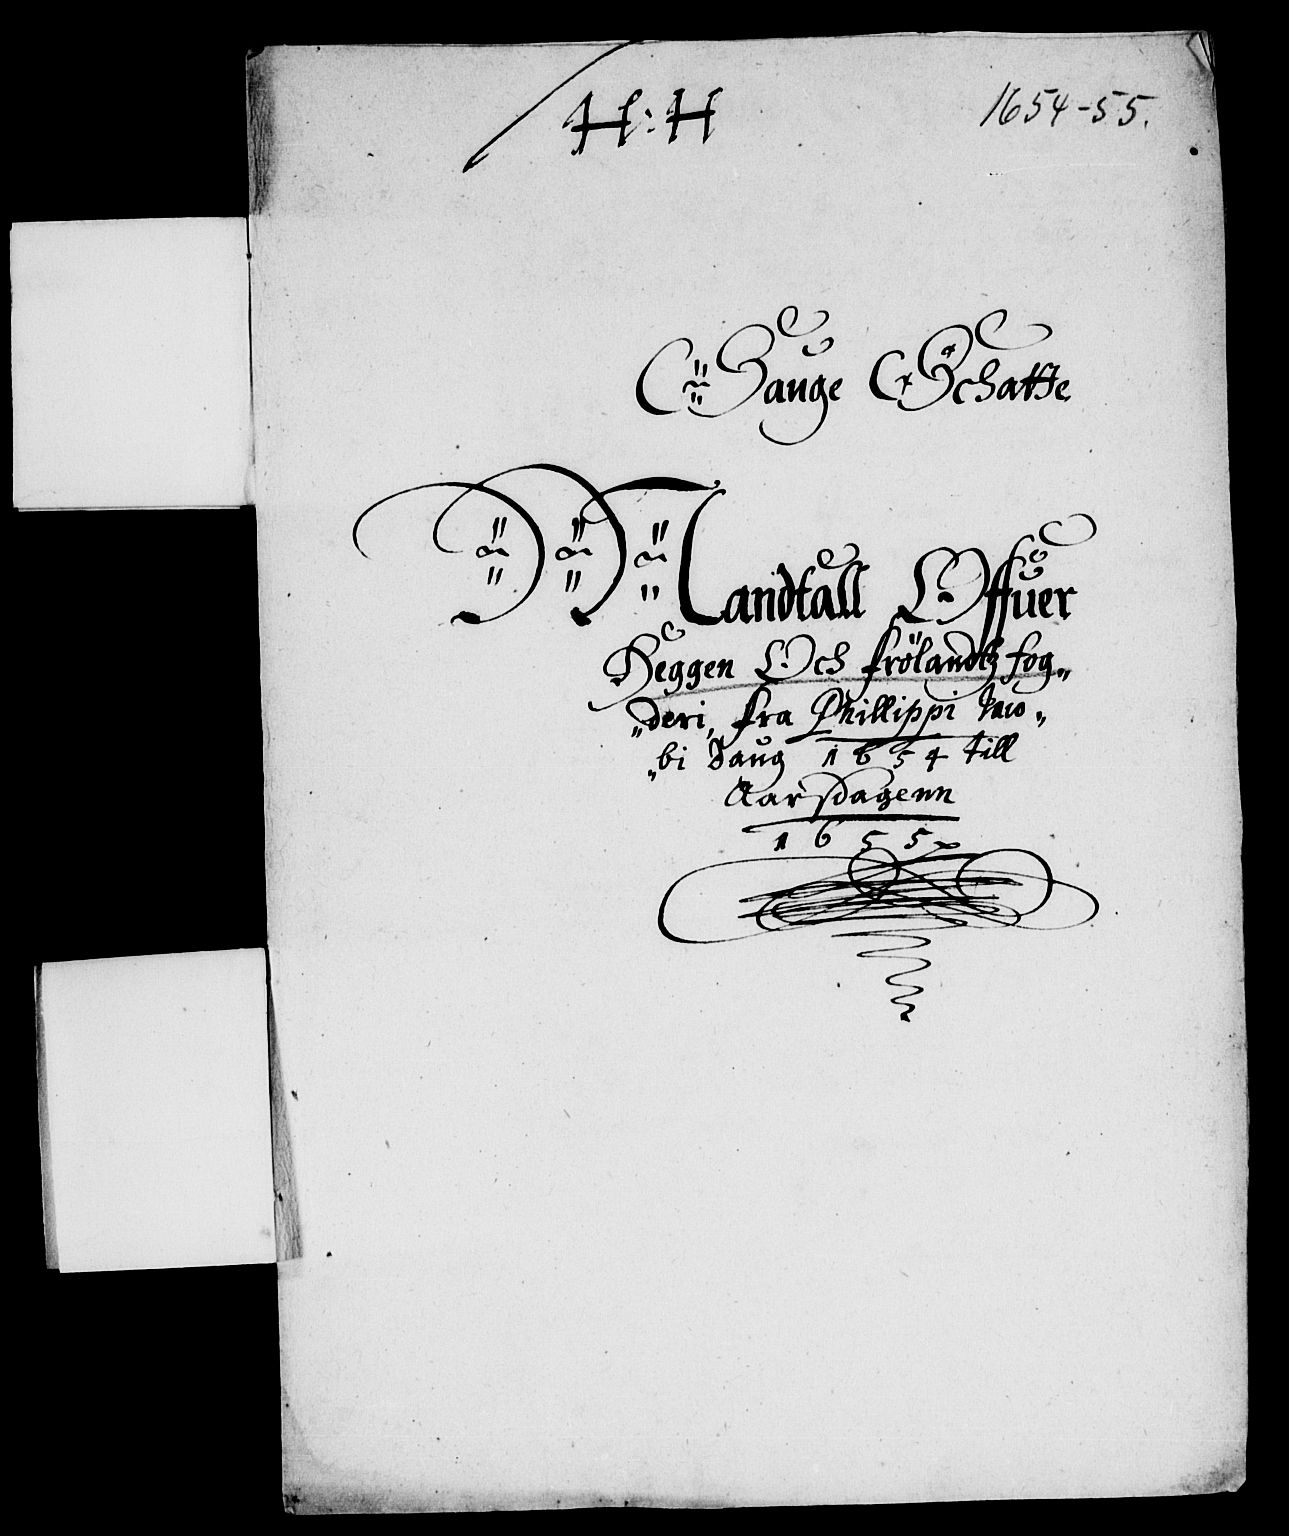 H:H
1654-55.
Sauge Schatte
Mandtall Offuer
Heggen Och Frölandtz fog„
„deri, fra Phillippi Jaco„
„bi Daug 1654 till
Aarsdagenn
1655